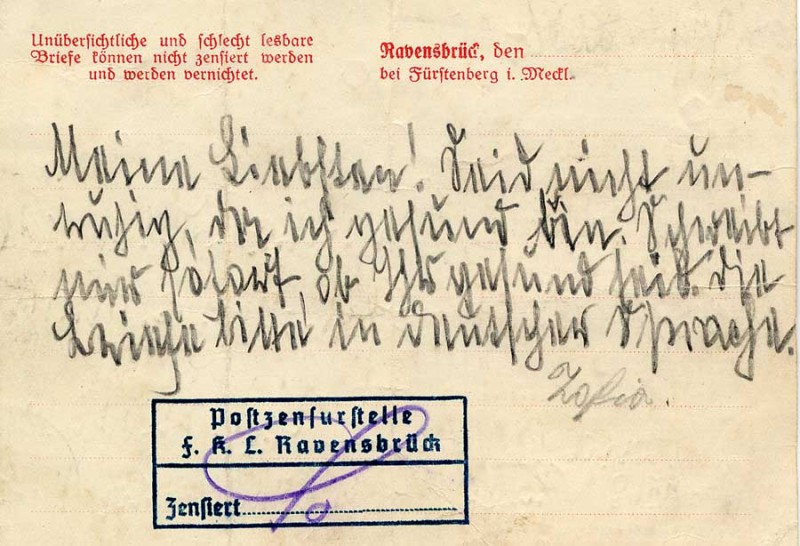 Unübersichtliche und schlecht lesbare
Briefe können nicht zensiert werden
und werden vernichtet.
Ravensbrück, den
bei Fürstenberg i. Meckl.
Meine Liebsten! Seid nicht un-
ruhig, da ich gesund bin. Schreibt
mir sofort, ob Ihr gesund seid. Die
Briefe bitte in deutscher Sprache.
Zofia.
Postzensurstelle
F. K. L. Ravensbrück
Zensiert